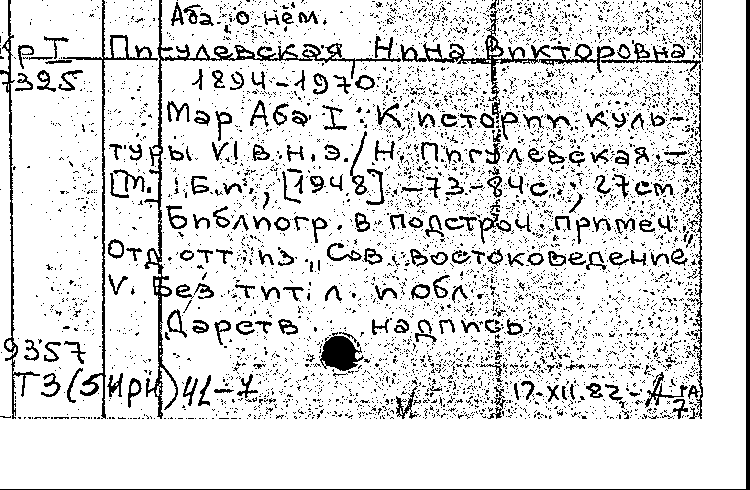 Аба, о нём.
Кр I Пигулевская Нина Викторовна
7325 1894-1970
Мар Аба I: К истории куль-
туры VI в.н.э./Н. Пигулевская.—
[М.]: Б.и., [1948].—73-84с.; 27см
Библиогр. в подстроч. примеч.
Отд. отт. из „Сов. востоковедение",
V. Без тит. л. и обл.
Дарств. надпись
9357
Т3(5Ирн)41-7
17.XII.82